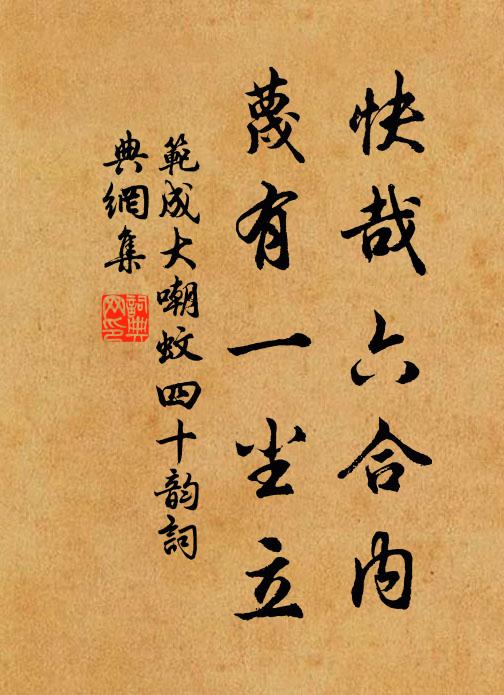 快哉六合内
蔑有一尘立
範成大嘲蚊四十韵詞
典網集
詞典网印